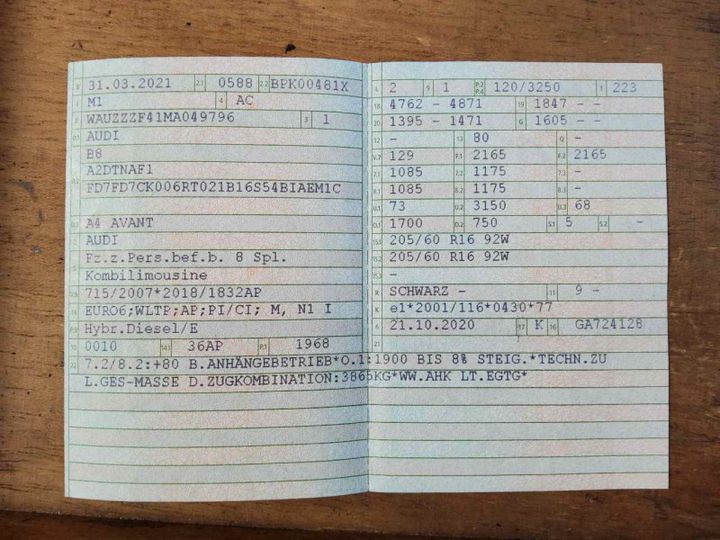 B 31.03.2021 2.1 0588 2.2 BPK00481X
J M1 4 AC
E WAUZZZF41MA049796 3 1
D.1 AUDI
D.2 B8
A2DTNAF1
FD7FD7CK006RT021B16S54BIAEM1C
D.3 A4 AVANT
2 AUDI
5 Fz.z.Pers.bef.b. 8 Spl.
Kombilimousine
V.9 715/2007*2018/1832AP
14 EURO6;WLTP;AP;PI/CI; M, N1 I
P.3 Hybr.Diesel/E
10 0010 14.1 36AP P.1 1968
L 2 9 1 P.2 P.4 120/3250 T 223
18 4762 - 4871 19 1847 - -
20 1395 - 1471 G 1605 - -
12 - 13 80 Q -
V.7 129 F.1 2165 F.2 2165
7.1 1085 7.2 1175 7.3 -
8.1 1085 8.2 1175 8.3 -
U.1 73 U.2 3150 U.3 68
O.1 1700 O.2 750 S.1 5 S.2 -
15.1 205/60 R16 92W
15.2 205/60 R16 92W
15.3 -
R SCHWARZ - 11 9 -
K e1*2001/116*0430*77
6 21.10.2020 17 K 16 GA724128
21
22 7.2/8.2:+80 B.ANHÄNGEBETRIEB*O.1:1900 BIS 8% STEIG.*TECHN.ZU
L.GES-MASSE D.ZUGKOMBINATION:3865KG*WW.AHK LT.EGTG*